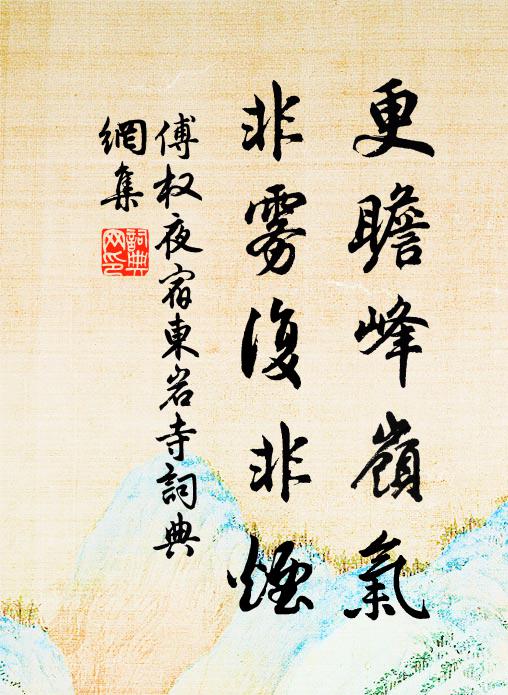 更瞻峰嶺氣
非雾復非煙
傅权夜宿東岩寺詞典
網集
詞典
网印